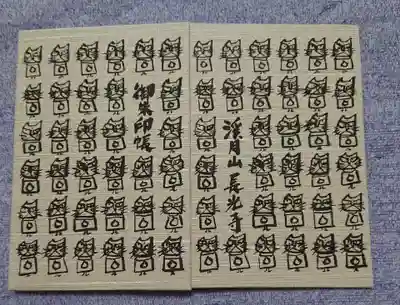 渓月山 長光寺
御朱印帳